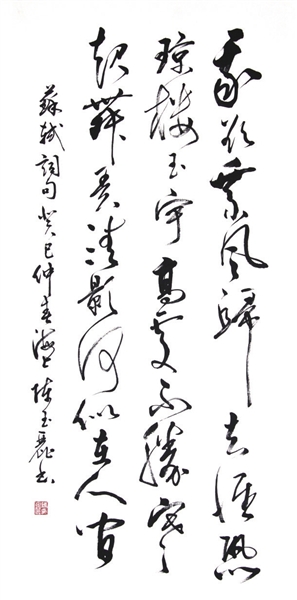 我欲乘風歸去惟恐
琼樓玉宇高處不勝寒
起舞弄清影何似在人間
蘇軾詞句癸巳仲春海上陳玉麗書